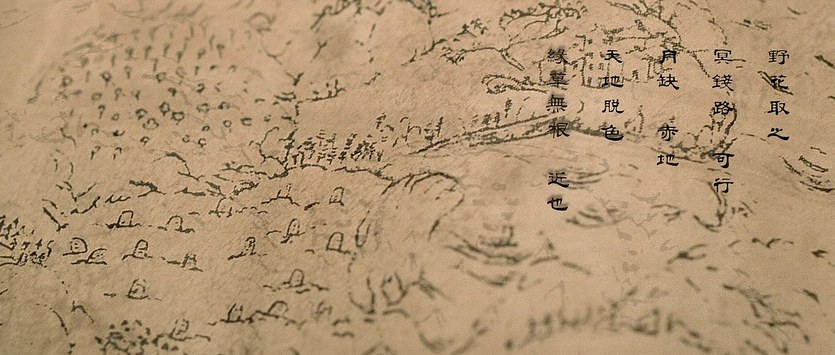 野花取之
冥錢路 可行
月缺 赤地
天地脱色
綠草無根 近也